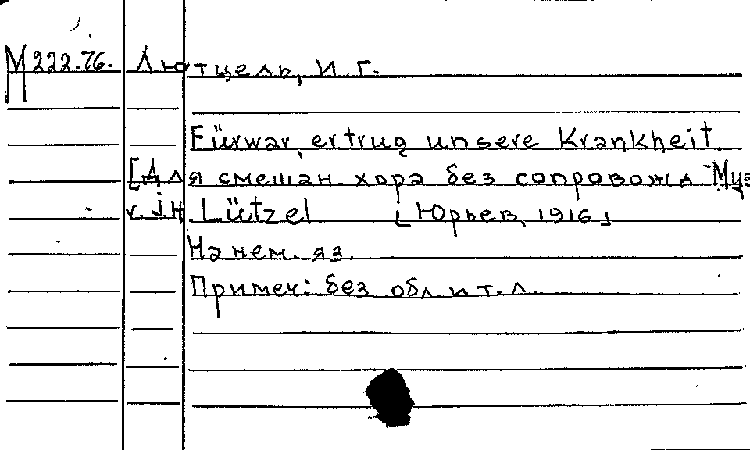 М 222.76. Лютцель, И. Г.
Fürwar, er trug unsere Krankheit
[Для смешан. хора без сопровожд. Муз.
v. J.H. Lützel [Юрьев, 1916]
На нем. яз.
Примеч: без обл. и т. л.